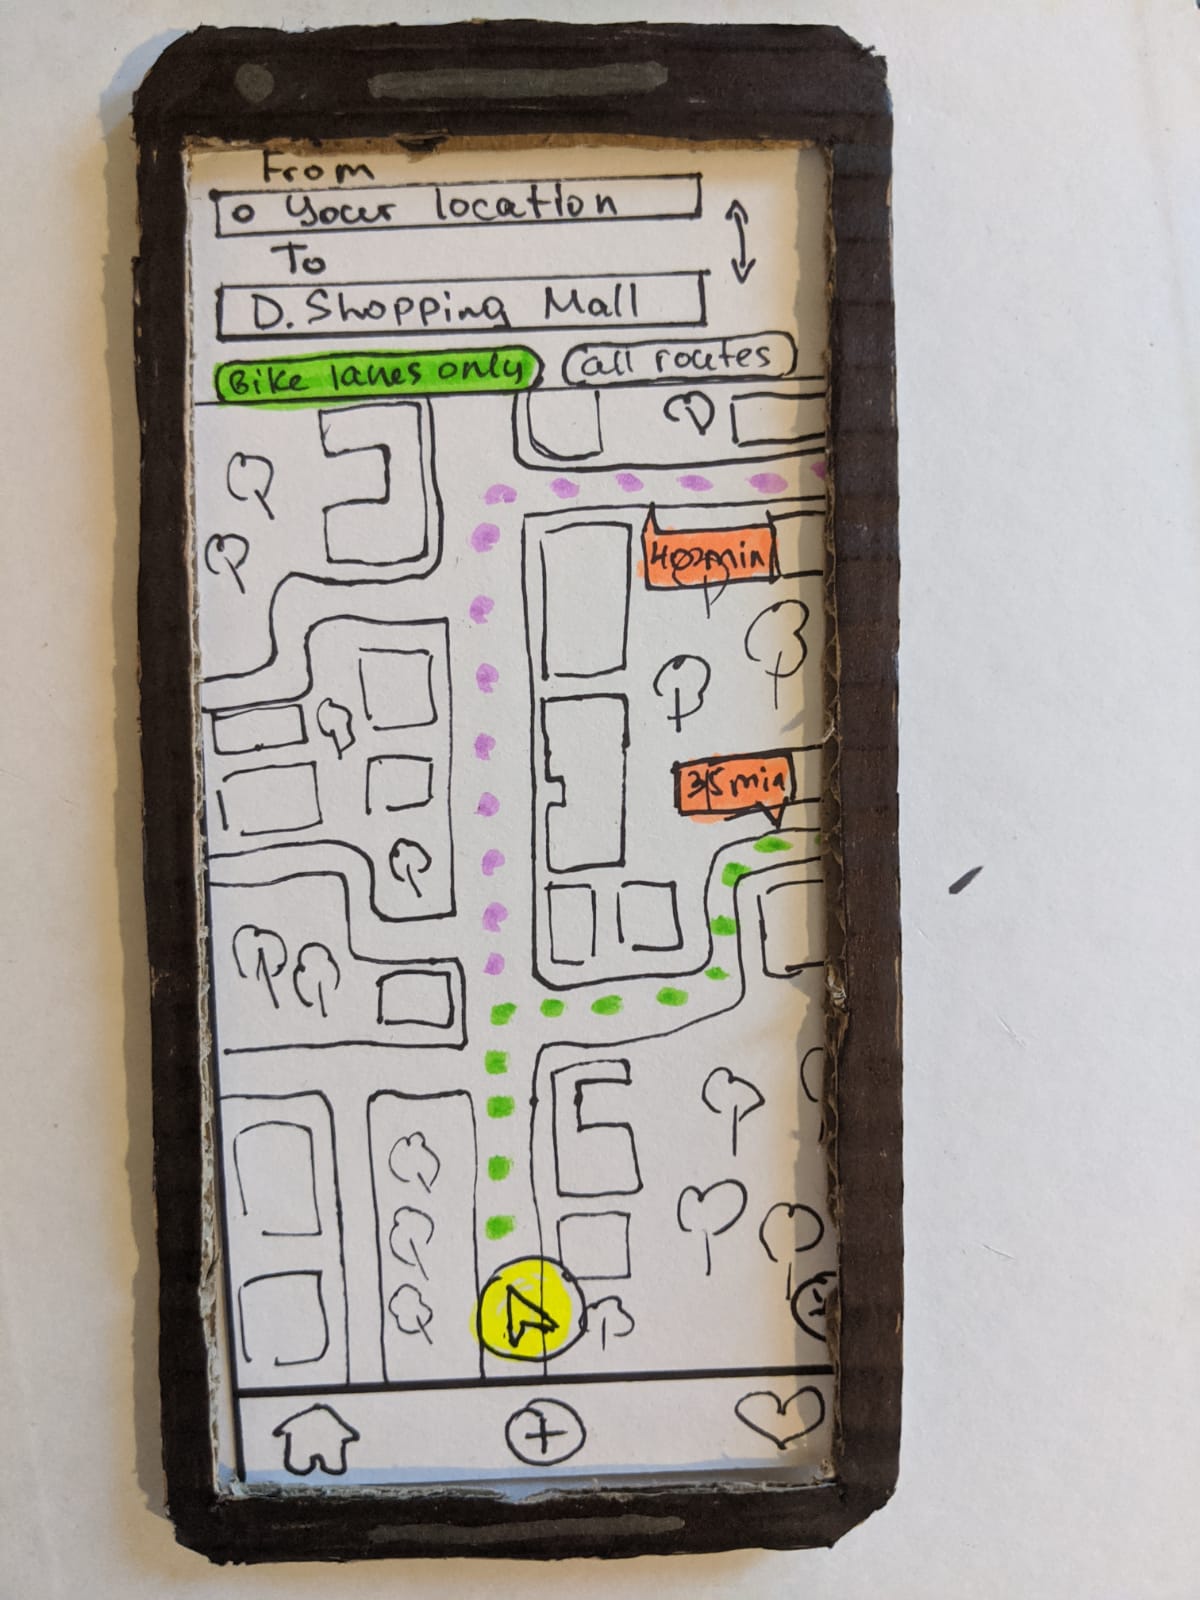 From
Your location
To
D. Shopping Mall
Bike lanes only
all routes
min
35 min